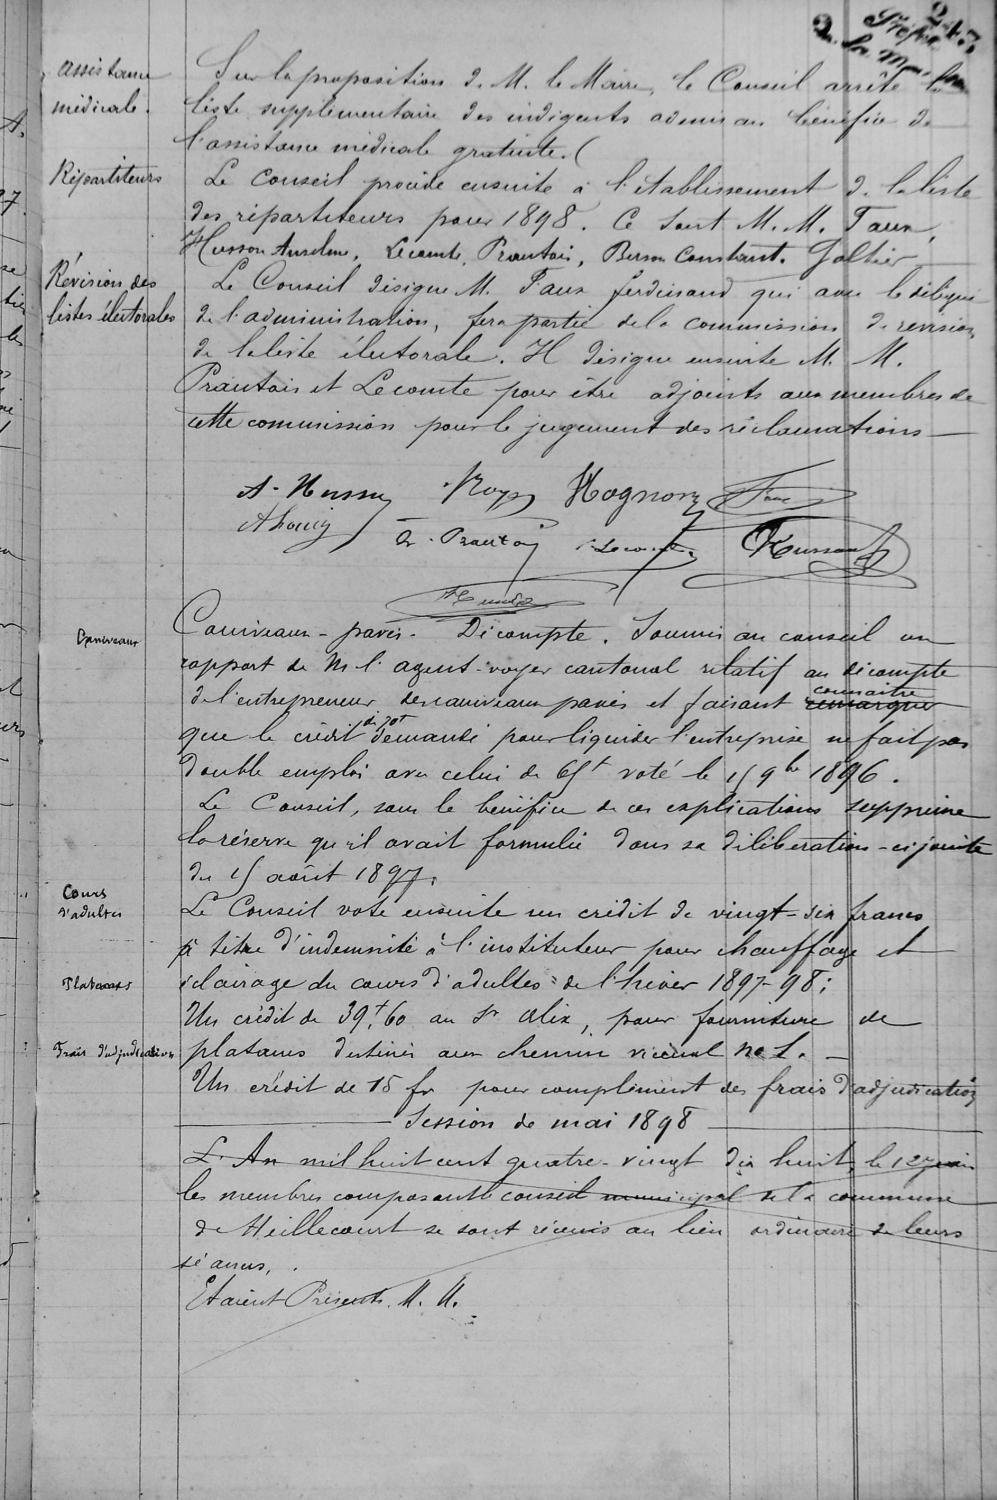 247
Préfe
Assistance
médicale.
Sur la proposition de M. le Maire, le Conseil arrête la
liste supplémentaire des indigents admis au bénéfice de
l'assistance médicale gratuite.
Répartiteurs
Le Conseil procède ensuite à l'établissement de la liste
des répartiteurs pour 1898. Ce sont M. M. Faux,
Husson Anselme, Lecomte, Prautois, Berson Constant. Galtier
Révision des
listes électorales
Le Conseil désigne M. Faux ferdinand qui avec le délégué
de l'administration, fera partie de la commission de révision
de la liste électorale. Il désigne ensuite M. M.
Prautois et Lecomte pour être adjoints aux membres de
cette commission pour le jugement des réclamations
A. Husson Roys Hognon Faux
Ch. Prautois Lecomte
Caniveaux
Caniveaux-pavés. Décompte. Soumis au conseil un
rapport de M l'agent-voyer cantonal relatif au décompte
de l'entrepreneur des caniveaux pavés et faisant remarquer connaitre
que le crédit de 70f demandé pour liquider l'entreprise ne fait pas
double emploi avec celui de 65f voté le 15 9bre 1896.
Le Conseil, sous le bénéfice de ces explications supprime
la réserve qu'il avait formulée dans sa délibération ci-jointe
du 15 août 1897.
Cours
d'adultes
Le Conseil vote ensuite un crédit de vingt-six francs
à titre d'indemnité à l'instituteur pour chauffage et
éclairage du cours d'adultes de l'hiver 1897-98;
Platanes
Un crédit de 39f,60 au Sr Alix, pour fourniture de
platanes destinés aux chemin vicinal No 1.
Frais d'adjudication
Un crédit de 15 fr pour complément des frais d'adjudication
Session de mai 1898
L'An mil huit cent quatre-vingt dix huit, le 12 juin
les membres composant le conseil municipal de la commune
de Heillecourt se sont réunis au lieu ordinaire de leurs
séances,
Etaient Présents. M. M.